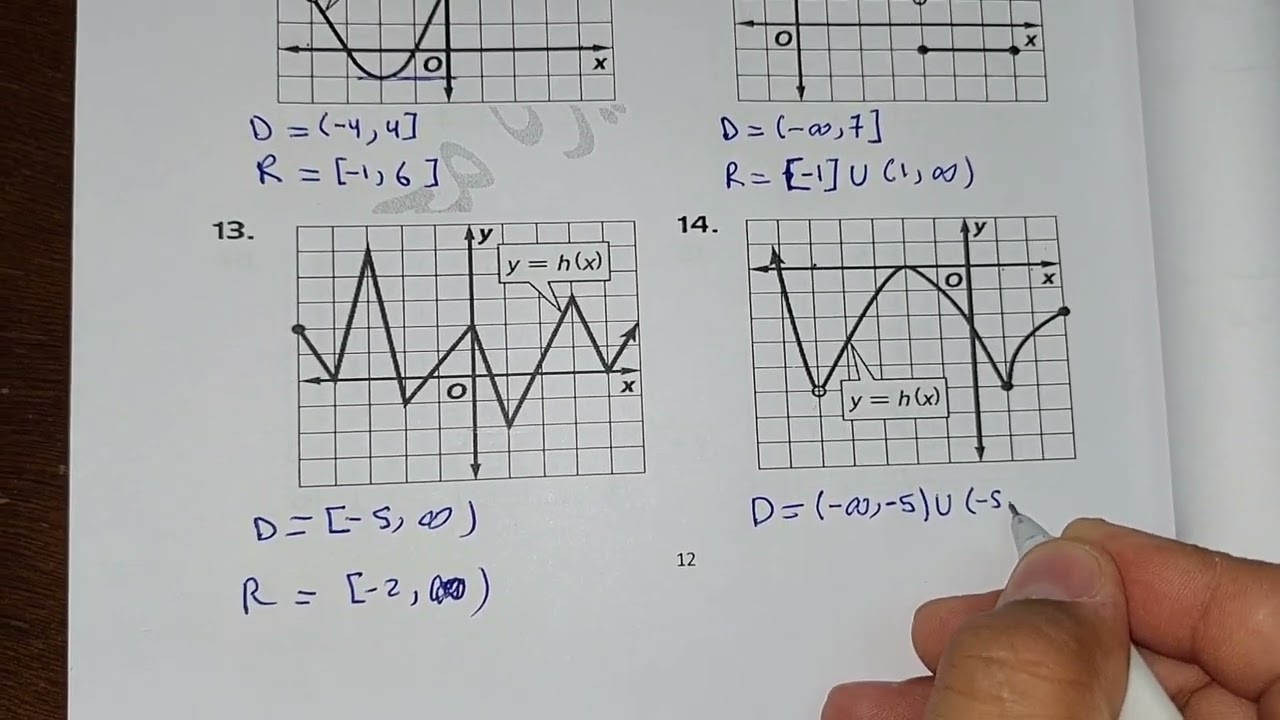 O
x
O
x
D = (-4, 4]
R = [-1, 6]
D = (-∞, 7]
R = [-1] ∪ (1, ∞)
13.
y
y = h(x)
O
x
14.
y
O
x
y = h(x)
D = [-5, ∞)
R = [-2, ∞)
D = (-∞, -5) ∪ (-5
12